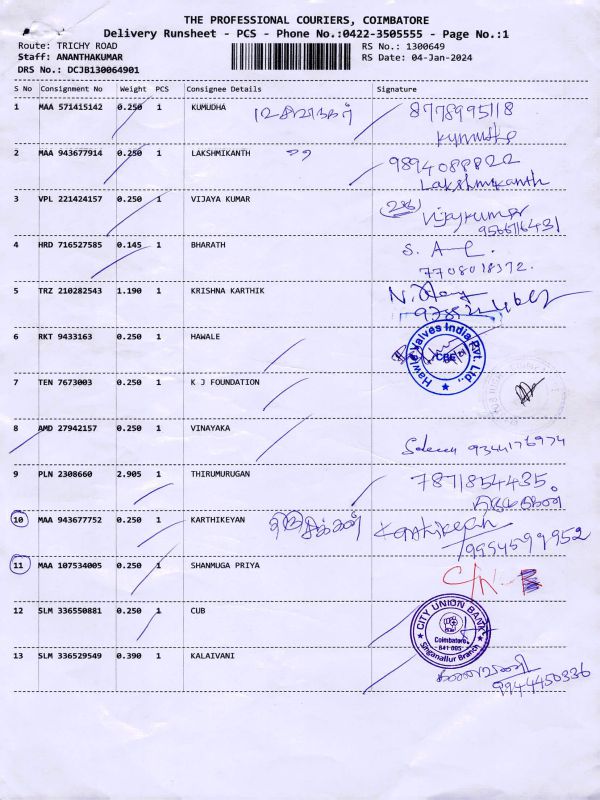 THE PROFESSIONAL COURIERS, COIMBATORE
Delivery Runsheet - PCS - Phone No.:0422-3505555 - Page No.:1
Route: TRICHY ROAD RS No.: 1300649
Staff: ANANTHAKUMAR RS Date: 04-Jan-2024
DRS No.: DCJB130064901
S No Consignment No Weight PCS Consignee Details Signature
1 MAA 571415142 0.250 1 KUMUDHA 8778995118
2 MAA 943677914 0.250 1 LAKSHMIKANTH 9894088822
Lakshmikanth
3 VPL 221424157 0.250 1 VIJAYA KUMAR Vijaykumar
9566716431
4 HRD 716527585 0.145 1 BHARATH
7708018372.
5 TRZ 210282543 1.190 1 KRISHNA KARTHIK
6 RKT 9433163 0.250 1 HAWALE
Hawle Valves India Pvt. Ltd.,
CBE
7 TEN 7673003 0.250 1 K J FOUNDATION
8 AMD 27942157 0.250 1 VINAYAKA 9344176974
9 PLN 2308660 2.905 1 THIRUMURUGAN 7871854435
10 MAA 943677752 0.250 1 KARTHIKEYAN Karthikeyan
9994599952
11 MAA 107534005 0.250 1 SHANMUGA PRIYA
12 SLM 336550881 0.250 1 CUB
CITY UNION BANK
Coimbatore
641 005
Singanallur Branch
13 SLM 336529549 0.390 1 KALAIVANI கலைவாணி
9944450336